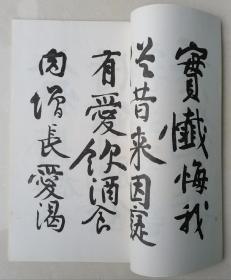 實懺悔我
從昔来因癡
有愛飲酒食
肉增長愛渴